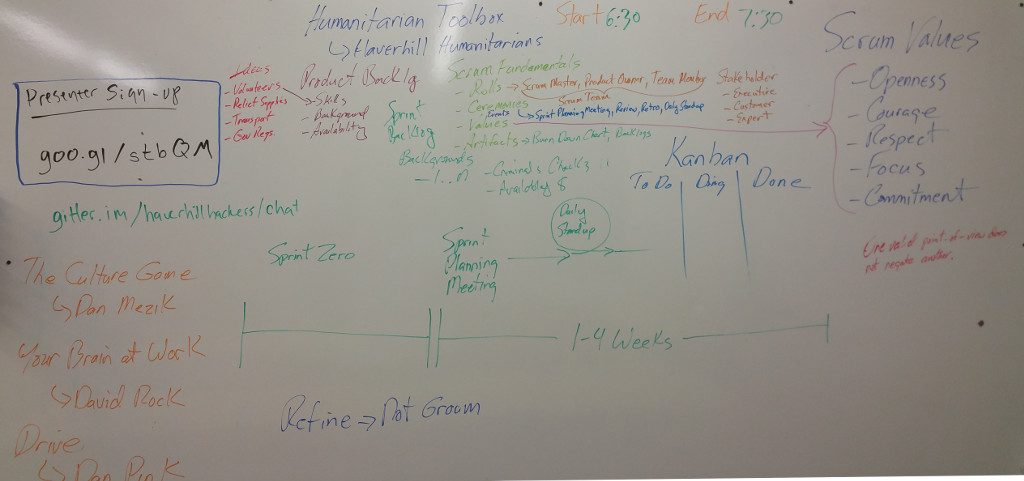 Humanitarian Toolbox
↳ Haverhill Humanitarians
Start 6:30
End 7:30
Presenter Sign-up
goo.gl/stbQM
gitter.im/haverhillhackers/chat
Ideas
- Volunteers
- Relief Supplies
- Transport
- Gov Regs.
Product Backlog
- Skills
- Background
- Availability
Sprint
Backlog
Scrum Fundamentals
- Rolls → Scrum Master, Product Owner, Team Member
Scrum Team
- Ceremonies
Events ↳ Sprint Planning Meeting, Review, Retro, Daily Standup
- Values
- Artifacts → Burn Down Chart, Backlogs
Stakeholder
- Executive
- Customer
- Expert
Backgrounds
- 1..n
- Criminals Checks
Scrum Values
- Openness
- Courage
- Respect
- Focus
- Commitment
One valid point-of-view does
not negate another.
Kanban
To Do
Doing
Done
Sprint Zero
Sprint
Planning
Meeting
Daily
Standup
1-4 Weeks
The Culture Game
↳ Dan Mezik
Your Brain at Work
↳ David Rock
Drive
↳ Dan Pink
Refine → Not Groom